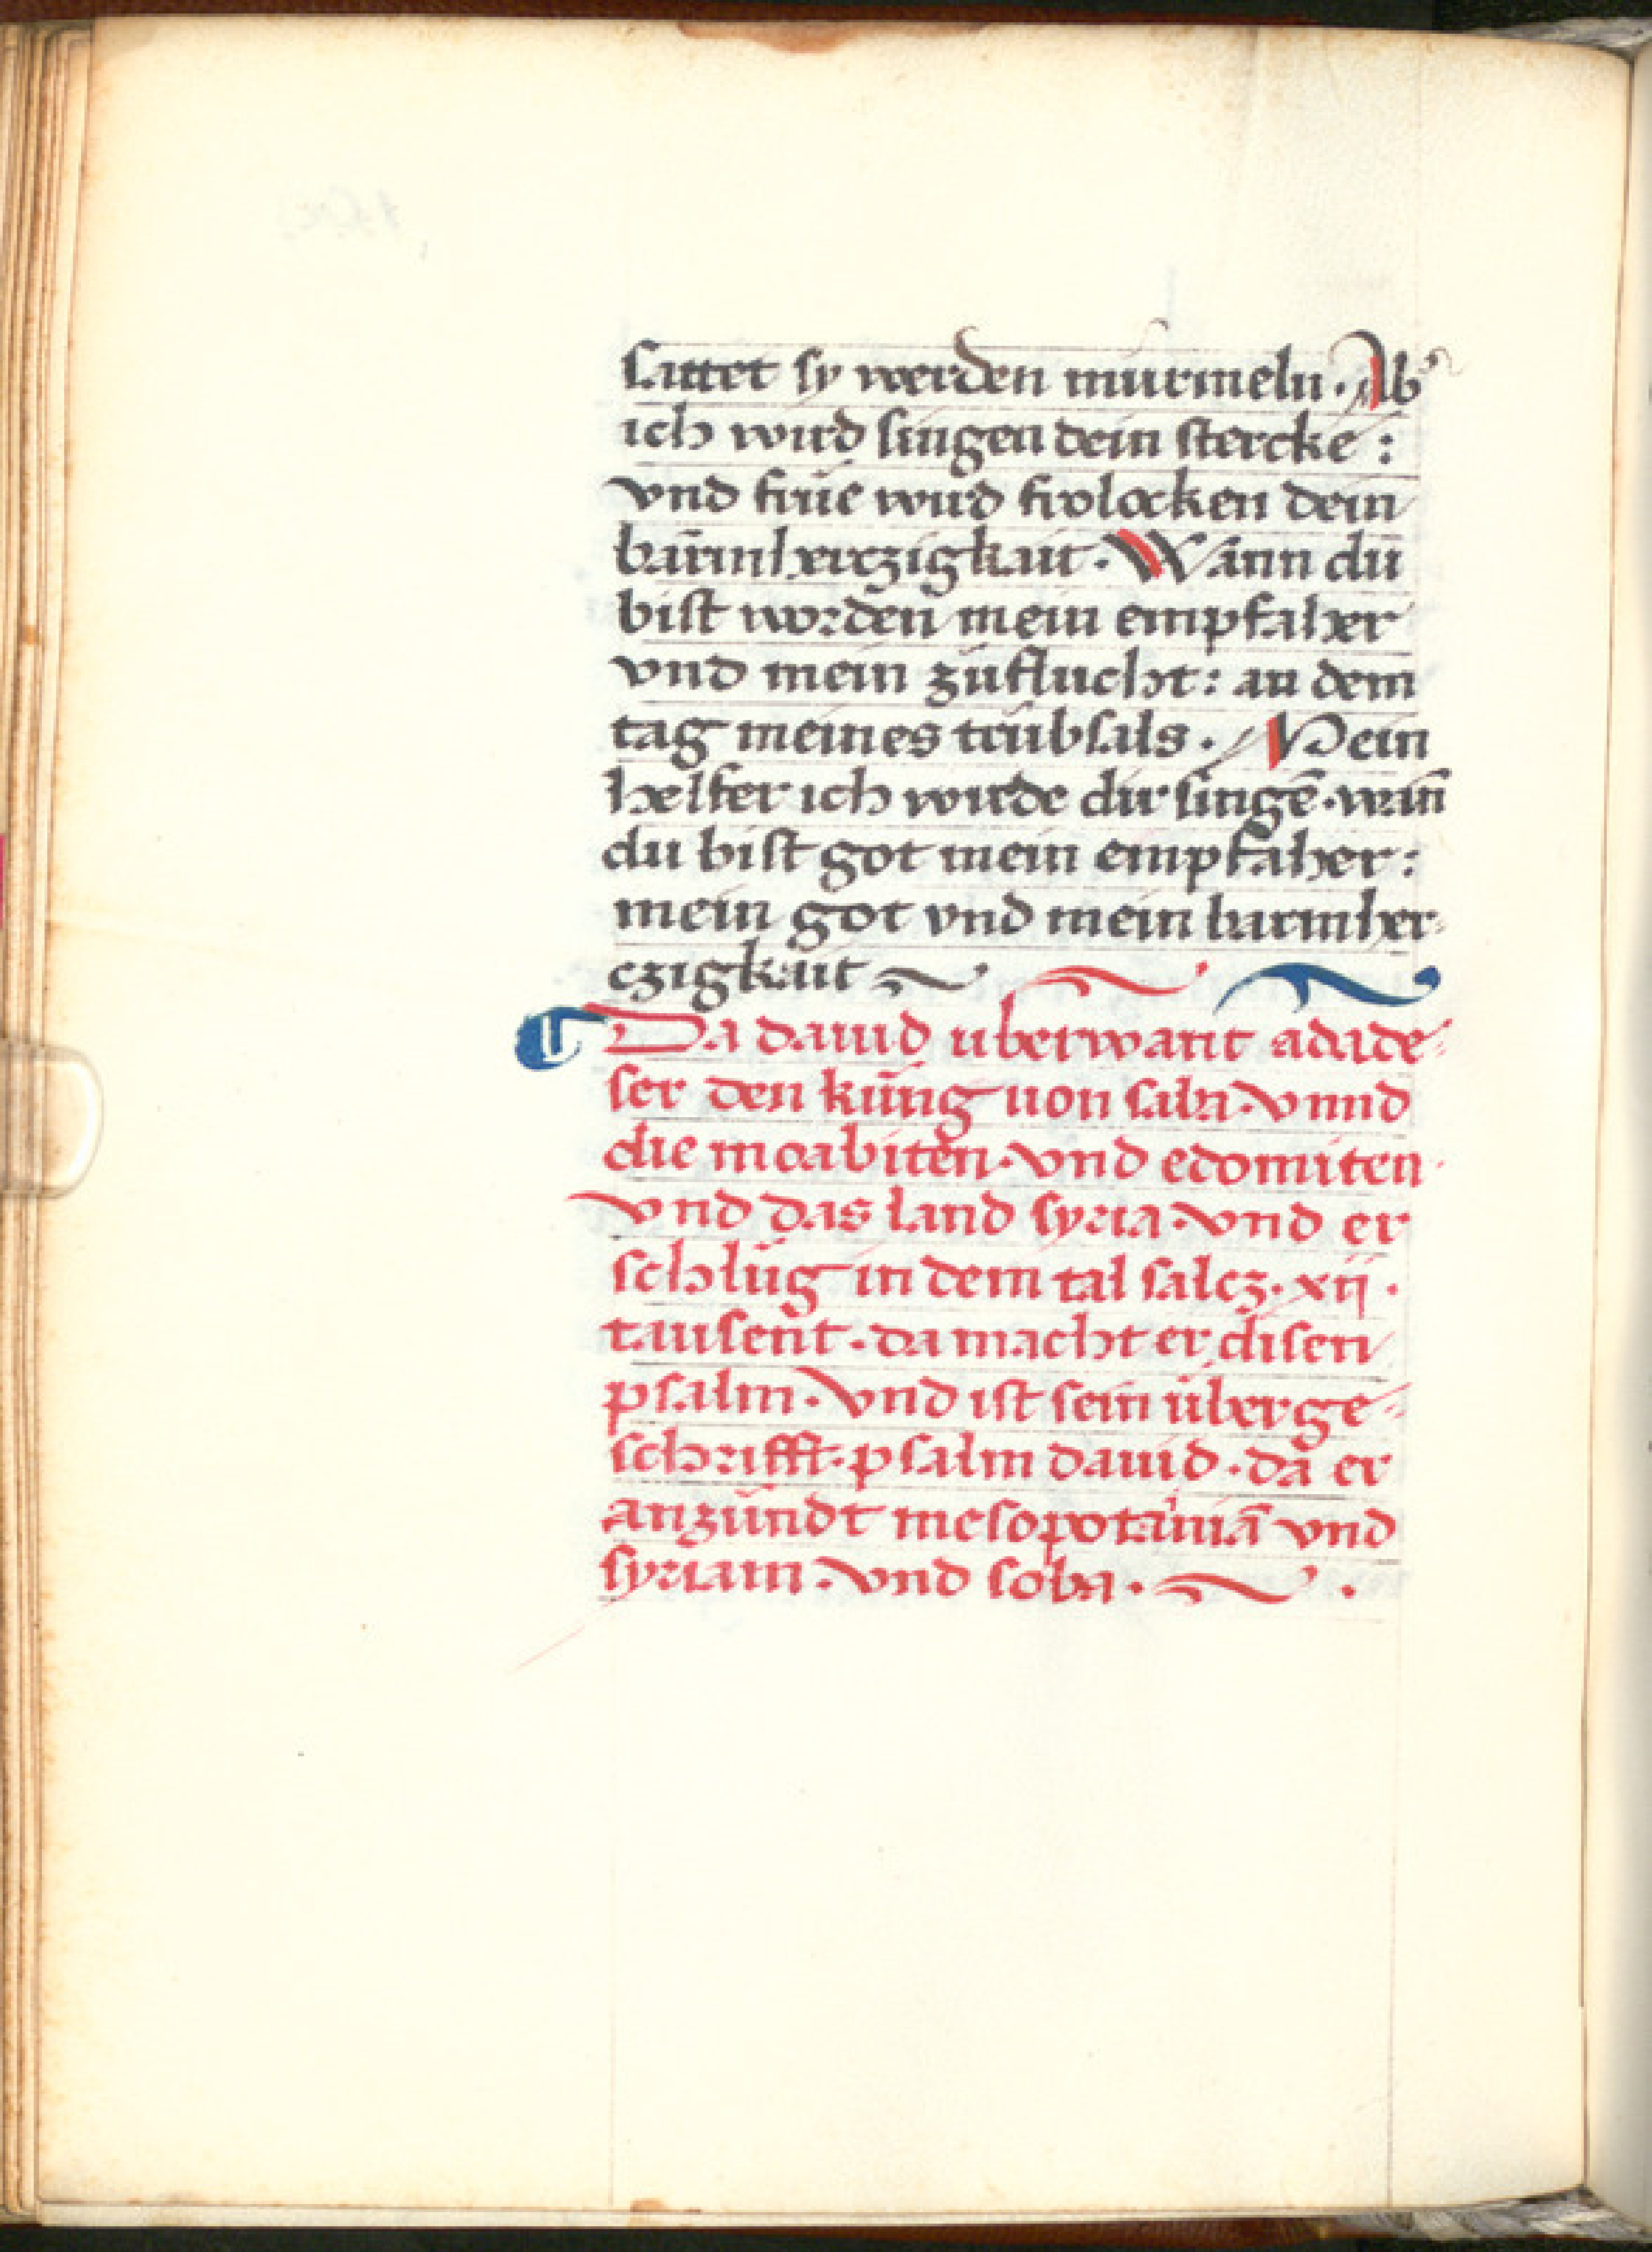 sattet sy werden murmeln. Ab'
ich wird singen dein stercke :
vnd frue wird frolocken dein
barmherczigkait. Wann du
bist worden mein empfaher
vnd mein zuflucht: an dem
tag meines trubsals. Mein
helfer ich wirde dir singē. wañ
du bist got mein empfaher:
mein got vnd mein barmher-
czigkait
Da dauid uberwant adade-
ser den kung uon saba. vnnd
die moabiten. vnd edomiten.
vnd das land syria. vnd er
schlug in dem tal salcz. xij.
tausent. da macht er disen
psalm. vnd ist sein überge-
schrifft. psalm dauid. da er
anzundt mesopotamiā vnd
syriam. vnd soba. .